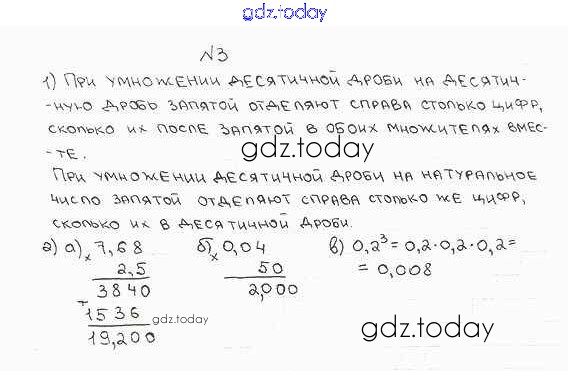 gdz.today
№3
1) ПРИ УМНОЖЕНИИ ДЕСЯТИЧНОЙ ДРОБИ НА ДЕСЯТИЧ-
-НУЮ ДРОБЬ ЗАПЯТОЙ ОТДЕЛЯЮТ СПРАВА СТОЛЬКО ЦИФР,
СКОЛЬКО ИХ ПОСЛЕ ЗАПЯТОЙ В ОБОИХ МНОЖИТЕЛЯХ ВМЕС-
-ТЕ.
gdz.today
ПРИ УМНОЖЕНИИ ДЕСЯТИЧНОЙ ДРОБИ НА НАТУРАЛЬНОЕ
ЧИСЛО ЗАПЯТОЙ ОТДЕЛЯЮТ СПРАВА СТОЛЬКО ЖЕ ЦИФР,
СКОЛЬКО ИХ В ДЕСЯТИЧНОЙ ДРОБИ.
gdz.today
2) а) × 7,68 б) × 0,04 в) 0,2³ = 0,2·0,2·0,2 =
2,5 50 = 0,008
3840 2,000
+
1536 gdz.today gdz.today
19,200